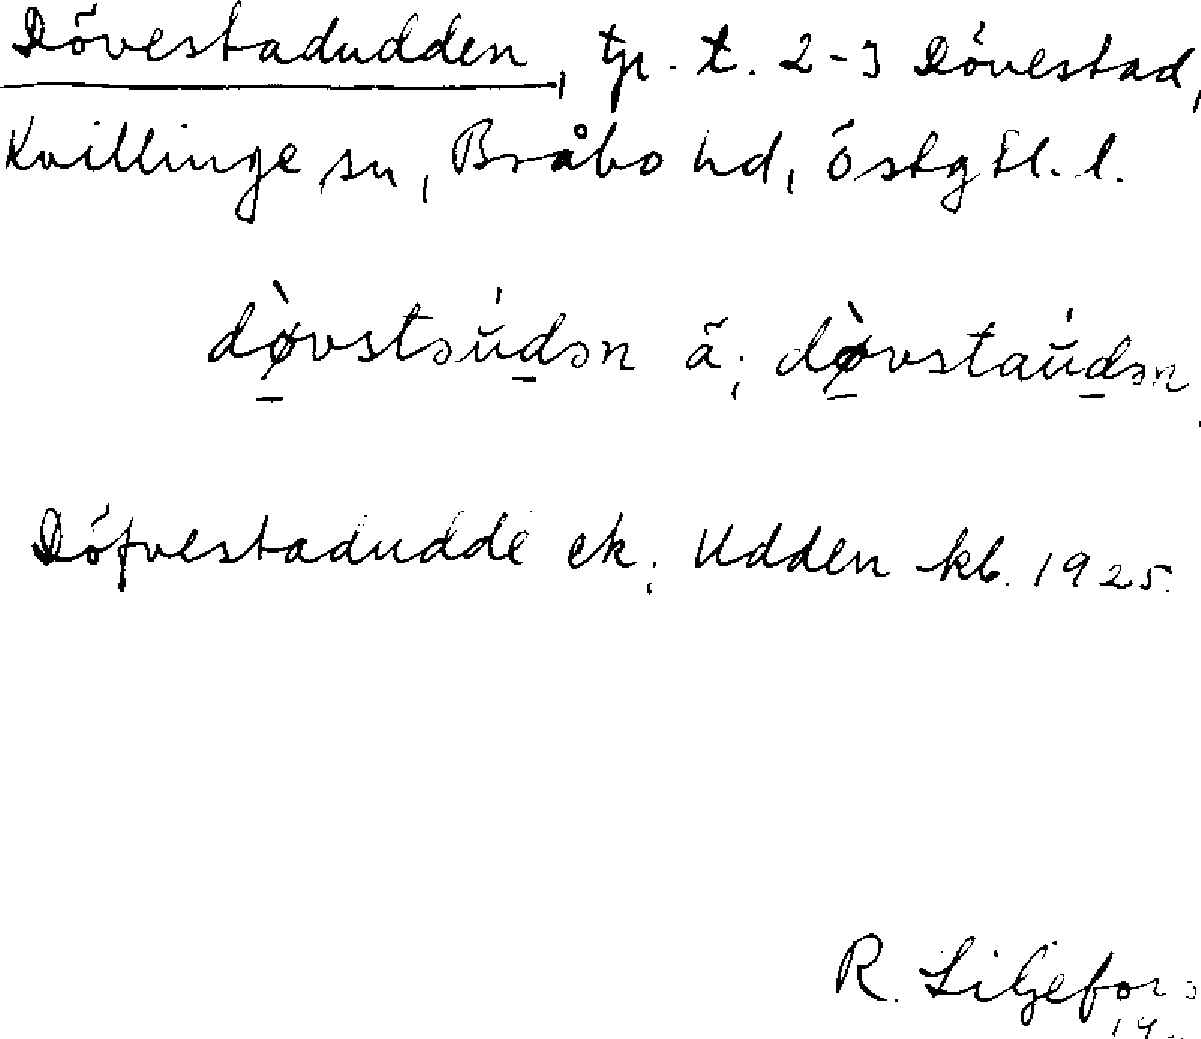 Dövestadudden, tp. t. 2-3 Dövestad,
Kvillinge sn, Bråbo hd, Östgtl. l.
dø̀vstəúdən ä; dø̀vstaúdən
Döfvestadudde ek; Udden kb. 1925.
R. Liljefors